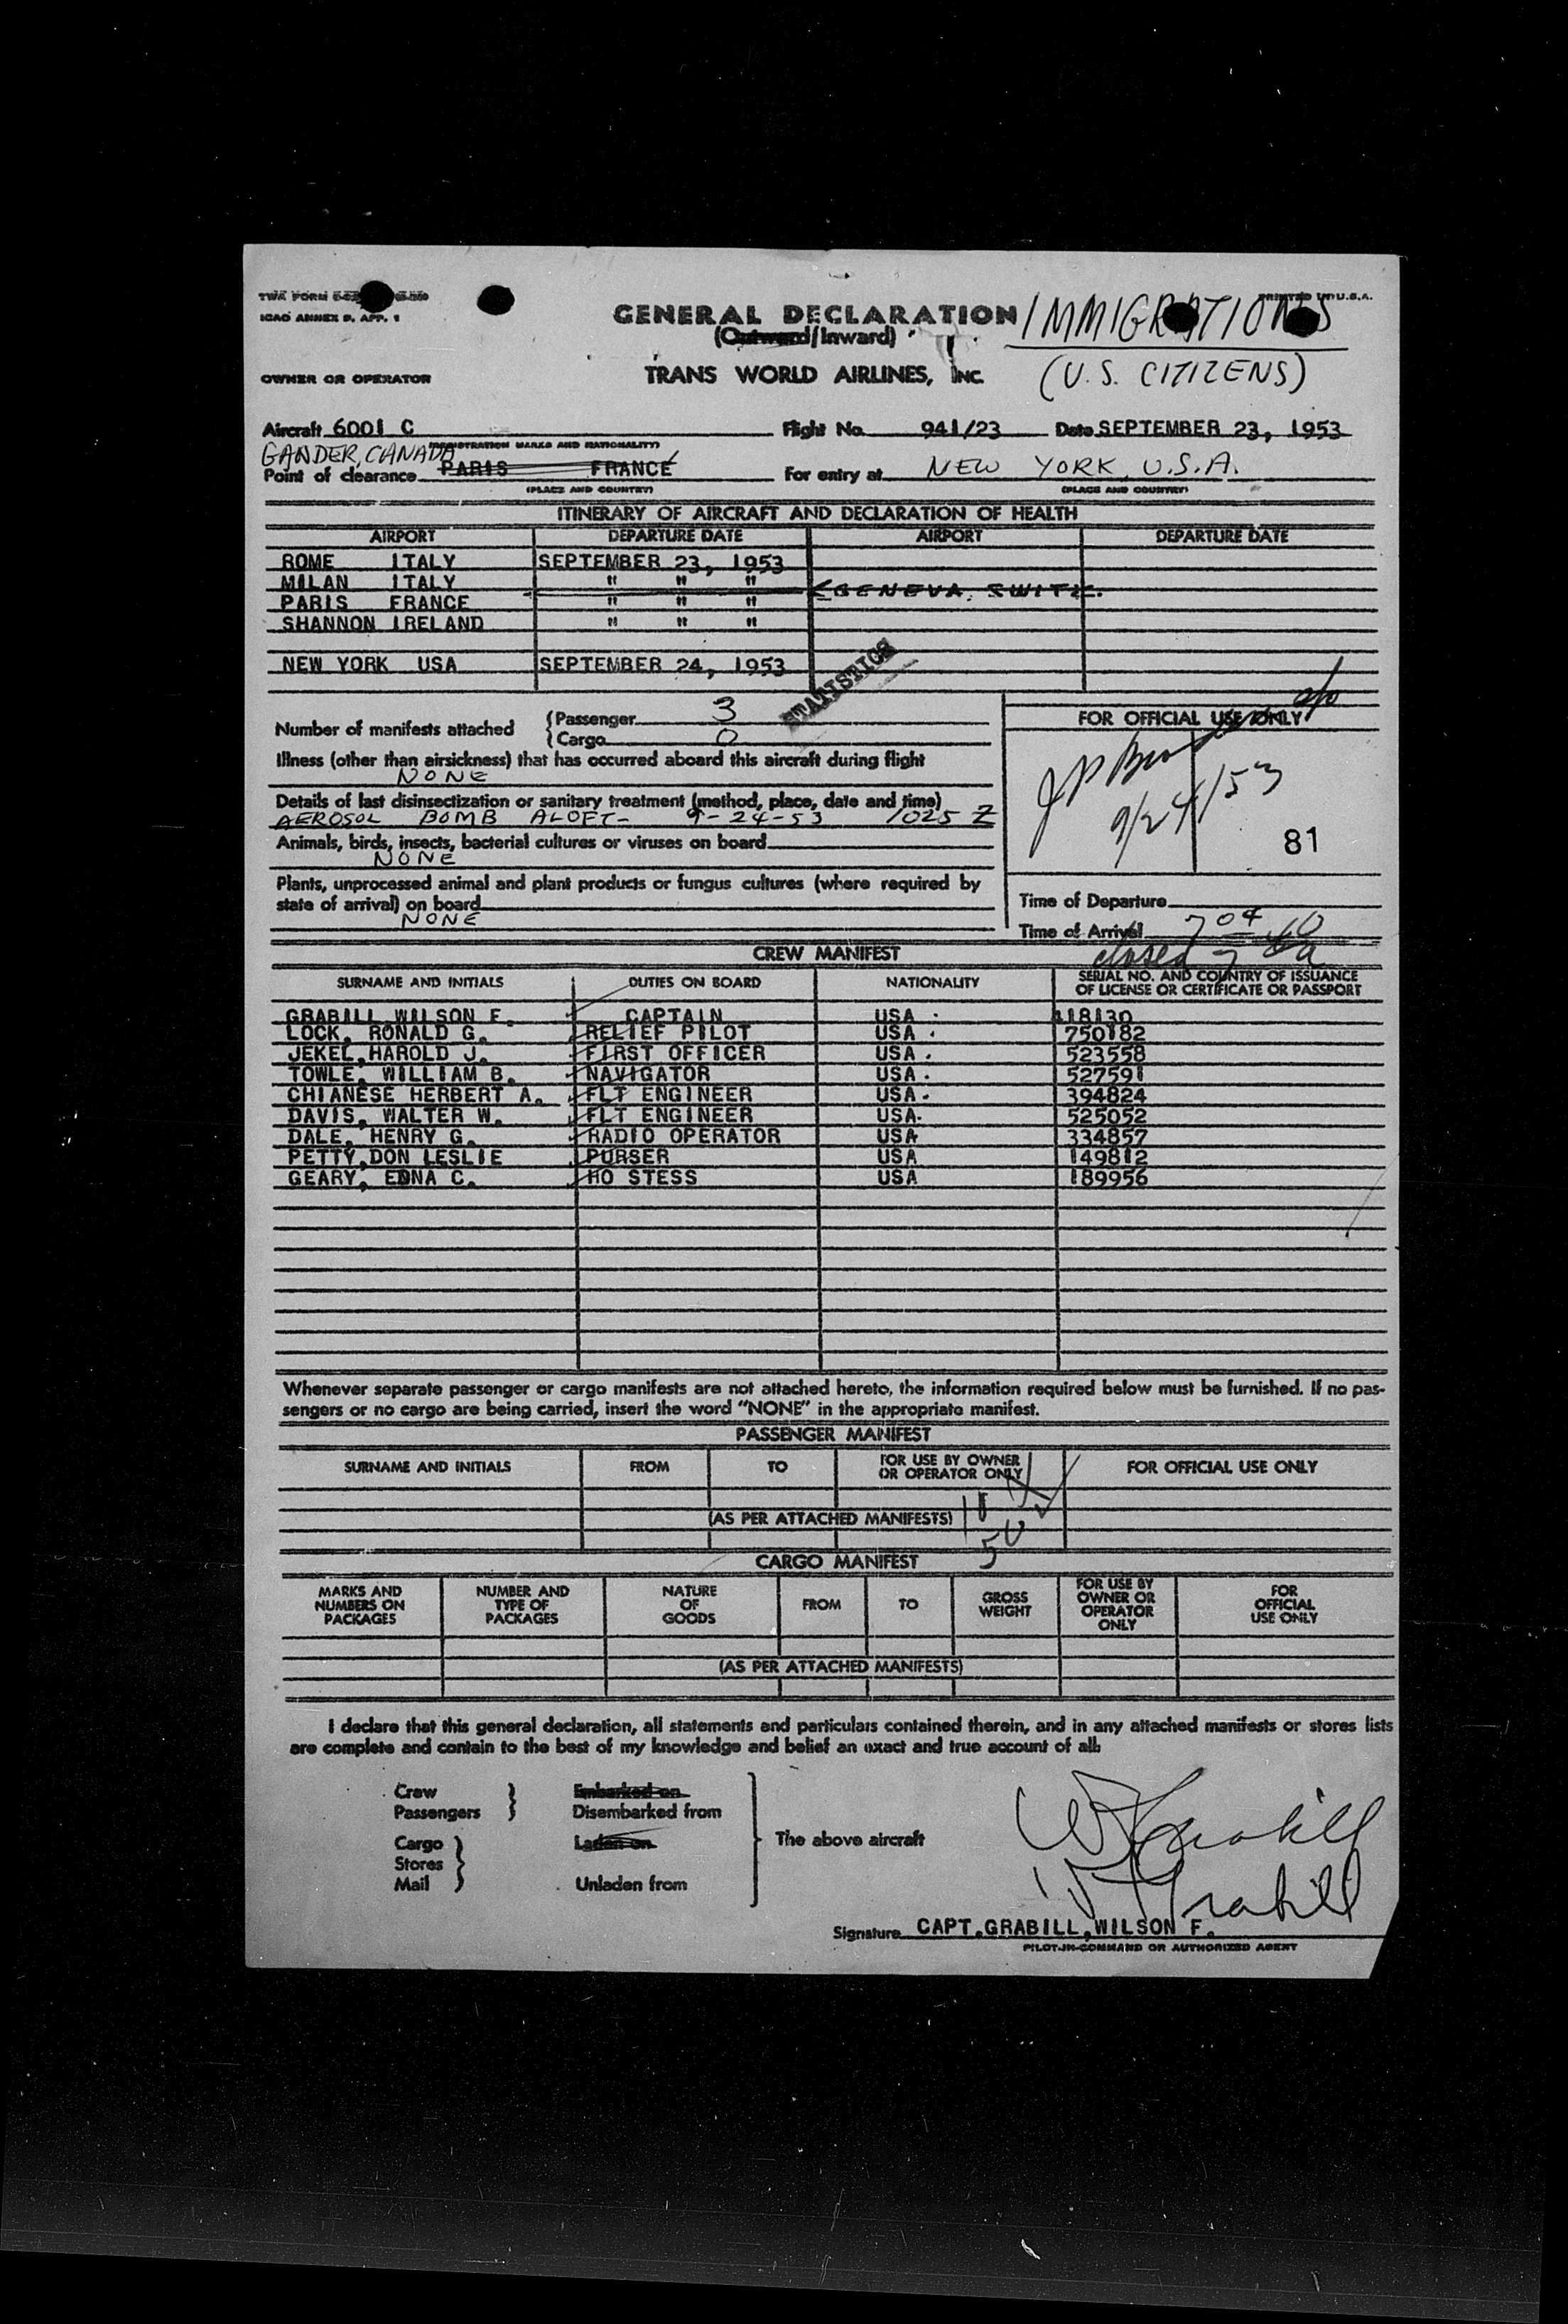 TWA FORM
ICAO ANNEX 9, APP. 1
PRINTED IN U.S.A.
GENERAL DECLARATION
IMMIGRATIONS
(Outward/Inward)
(U.S. CITIZENS)
OWNER OR OPERATOR
TRANS WORLD AIRLINES, INC.
Aircraft 6001 C Flight No. 941/23 Date SEPTEMBER 23, 1953
(REGISTRATION MARKS AND NATIONALITY)
GANDER, CANADA
Point of clearance PARIS FRANCE For entry at NEW YORK, U.S.A.
(PLACE AND COUNTRY) (PLACE AND COUNTRY)
ITINERARY OF AIRCRAFT AND DECLARATION OF HEALTH
AIRPORT DEPARTURE DATE AIRPORT DEPARTURE DATE
ROME ITALY SEPTEMBER 23, 1953
MILAN ITALY " " "
GENEVA, SWITZ.
PARIS FRANCE " " "
SHANNON IRELAND " " "
NEW YORK USA SEPTEMBER 24, 1953
STATISTICS
Number of manifests attached (Passenger 3
(Cargo 0
FOR OFFICIAL USE ONLY
Illness (other than airsickness) that has occurred aboard this aircraft during flight
NONE
Details of last disinsectization or sanitary treatment (method, place, date and time)
AEROSOL BOMB ALOFT- 9-24-53 1025 Z
9/24/53
81
Animals, birds, insects, bacterial cultures or viruses on board
NONE
Plants, unprocessed animal and plant products or fungus cultures (where required by
state of arrival) on board
NONE
Time of Departure
Time of Arrival 704
closed
CREW MANIFEST
SURNAME AND INITIALS DUTIES ON BOARD NATIONALITY SERIAL NO. AND COUNTRY OF ISSUANCE
OF LICENSE OR CERTIFICATE OR PASSPORT
GRABILL WILSON F. CAPTAIN USA 118130
LOCK, RONALD G. RELIEF PILOT USA 750182
JEKEL, HAROLD J. FIRST OFFICER USA 523558
TOWLE, WILLIAM B. NAVIGATOR USA 527591
CHIANESE HERBERT A. FLT ENGINEER USA 394824
DAVIS, WALTER W. FLT ENGINEER USA 525052
DALE, HENRY G. RADIO OPERATOR USA 334857
PETTY, DON LESLIE PURSER USA 149812
GEARY, EDNA C. HO STESS USA 189956
Whenever separate passenger or cargo manifests are not attached hereto, the information required below must be furnished. If no pas-
sengers or no cargo are being carried, insert the word "NONE" in the appropriate manifest.
PASSENGER MANIFEST
SURNAME AND INITIALS FROM TO FOR USE BY OWNER
OR OPERATOR ONLY FOR OFFICIAL USE ONLY
(AS PER ATTACHED MANIFESTS)
50
CARGO MANIFEST
MARKS AND
NUMBERS ON
PACKAGES NUMBER AND
TYPE OF
PACKAGES NATURE
OF
GOODS FROM TO GROSS
WEIGHT FOR USE BY
OWNER OR
OPERATOR
ONLY FOR
OFFICIAL
USE ONLY
(AS PER ATTACHED MANIFESTS)
I declare that this general declaration, all statements and particulars contained therein, and in any attached manifests or stores lists
are complete and contain to the best of my knowledge and belief an exact and true account of all:
Crew Embarked on
Passengers Disembarked from
Cargo Laden on The above aircraft
Stores
Mail Unladen from
WF Grabill
WF Grabill
Signature CAPT. GRABILL, WILSON F.
PILOT-IN-COMMAND OR AUTHORIZED AGENT